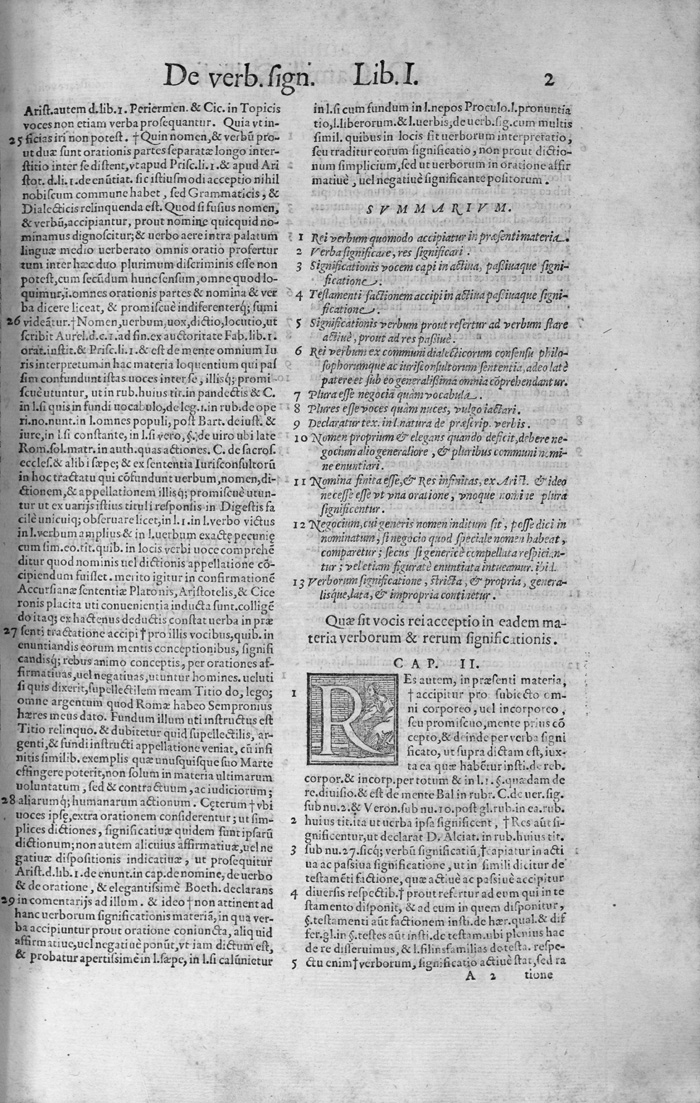 De verb. sign. Lib. I. 2
Arist. autem d. lib. 1. Periermen. & Cic. in Topicis
voces non etiam verba prosequantur. Quia vt in-
25 ficias iri non potest. † Quin nomen, & verbũ pro-
ut duæ sunt orationis partes separatæ longo inter-
stitio inter se distent, vt apud Prisc. li. 1. & apud Ari
stot. d. li. 1. de enũtiat. sic istiusmodi acceptio nihil
nobiscum commune habet, sed Grammaticis, &
Dialecticis relinquenda est. Quod si fusius nomen,
& verbũ, accipiantur, prout nomine quicquid no-
minamus dignoscitur; & uerbo aere intra palatum
linguæ medio uerberato omnis oratio profertur
tum inter hæc duo plurimum discriminis esse non
potest, cum secũdum hunc sensum, omne quod lo-
quimur, i. omnes orationis partes & nomina & ver
ba dicere liceat, & promiscuè indifferenterq; sumi
26 videãtur. † Nomen, uerbum, uox, dictio, locutio, ut
scribit Aurel. d. c. 1. ad fin. ex auctoritate Fab. lib. 1.
orat. instit. & Prisc. li. 1. & est de mente omnium Iu
ris interpretum in hac materia loquentium qui pas
sim confundunt istas uoces inter se, illisq; promi
scuè utuntur, ut in rub. huius tit. in pandectis & C.
in l. si quis in fundi uocabulo, de leg. 1. in rub. de ope
ri. no. nunt. in l. omnes populi, post Bart. de iust. &
iure, in l. si constante, in l. si vero, §. de uiro ubi late
Rom. sol. matr. in auth. quas actiones. C. de sacros.
eccles. & alibi sæpe; & ex sententia Iurisconsultorũ
in hoc tractatu qui cõfundunt uerbum, nomen, di-
ctionem, & appellationem illisq; promiscuè utun-
tur ut ex uarijs istius tituli responsis in Digestis fa
cilè unicuiq; obseruare licet, in l. 1. in l. verbo victus
in l. verbum amplius & in l. uerbum exacte pecunie
cum sim. eo. tit. quib. in locis verbi uoce comprehẽ
ditur quod nominis uel dictionis appellatione cõ-
cipiendum fuisset. merito igitur in confirmationẽ
Accursianæ sententiæ Platonis, Aristotelis, & Cice
ronis placita uti conuenientia inducta sunt. colligẽ
do itaq; ex hactenus deductis constat uerba in præ
27 senti tractatione accipi † pro illis vocibus, quib. in
enuntiandis eorum mentis conceptionibus, signifi
candisq; rebus animo conceptis, per orationes af-
firmatiuas, uel negatiuas, utuntur homines. ueluti
si quis dixerit, supellectilem meam Titio do, lego;
omne argentum quod Romæ habeo Sempronius
hæres meus dato. Fundum illum uti instructus est
Titio relinquo. & dubitetur quid supellectilis, ar-
genti, & fundi instructi appellatione veniat, cũ infi
nitis similib. exemplis quæ unusquisque suo Marte
effingere poterit, non solum in materia ultimarum
uoluntatum, sed & contractuum, ac iudiciorum;
28 aliarumq; humanarum actionum. Cęterum † vbi
uoces ipsę, extra orationem considerentur; ut sim-
plices dictiones, significatiuæ quidem sunt ipsarũ
dictionum; non autem alicuius affirmatiuæ, uel ne
gatiuæ dispositionis indicatiuæ, ut prosequitur
Arist. d. lib. 1. de enunt. in cap. de nomine, de uerbo
& de oratione, & elegantissimè Boeth. declarans
29 in comentarijs ad illum. & ideo † non attinent ad
hanc uerborum significationis materiã, in qua ver-
ba accipiuntur prout oratione coniuncta, aliquid
affirmatiue, uel negatiuè ponũt, vt iam dictum est,
& probatur apertissimè in l. sæpe, in l. si calũnietur
in l. si cum fundum in l. nepos Proculo. l. pronuntia
tio, l. liberorum. & l. uerbis, de uerb. sig. cum multis
simil. quibus in locis fit uerborum interpretatio,
seu traditur eorum significatio, non prout dictio-
num simplicium, sed ut uerborum in oratione affir
matiuè, uel negatiuè significante positorum.
SVMMARIVM.
1 Rei verbum quomodo accipiatur in præsenti materia.
2 Verba significare, res significari.
3 Significationis vocem capi in actiua, passiuaque signi-
ficatione.
4 Testamenti factionem accipi in actiua passiuaque signi-
ficatione.
5 Significationis verbum prout refertur ad verbum stare
actiuè, prout ad res passiuè.
6 Rei verbum ex communi dialecticorum consensu philo-
sophorumque ac iurisconsultorum sententia, adeo latè
patere et sub eo generalissima omnia cõprehendantur.
7 Plura esse negocia quàm vocabula.
8 Plures esse voces quàm nuces, vulgo iactari.
9 Declaratur tex. in l. natura de præscrip. verbis.
10 Nomen proprium & elegans quando deficit, debere ne-
gocium alio generaliore, & pluribus communi nomi-
ne enuntiari.
11 Nomina finita esse, & Res infinitas, ex Arist. & ideo
necesse esse vt vna oratione, vnoque nomine plura
significentur.
12 Negocium, cui generis nomen inditum sit, posse dici in
nominatum, si negocio quod speciale nomen habeat,
comparetur; secus si genericè compellata respician-
tur; vel etiam figuratè enuntiata intueamur. ibi l.
13 Verborum significatione, stricta, & propria, genera-
lisque, lata, & impropria continetur.
Quæ sit vocis rei acceptio in eadem ma-
teria verborum & rerum significationis.
CAP. II.
1 REs autem, in præsenti materia,
† accipitur pro subiecto om-
ni corporeo, uel incorporeo,
seu promiscuo, mente prius cõ
cepto, & deinde per verba signi
ficato, ut supra dictam est, iux-
ta ea quæ habẽtur insti. de reb.
corpor. & incorp. per totum & in l. 1. §. quædam de
re. diuisio. & est de mente Bal in rubr. C. de uer. sig.
sub nu. 2. & Veron. sub nu. 10. post gl. rub. in ea. rub.
2 huius tit. ita ut uerba ipsa significent, † Res aũt si-
gnificentur, ut declarat D. Alciat. in rub. huius tit.
3 sub nu. 27. sicq; verbũ significatiũ, † capiatur in acti
ua ac passiua significatione, ut in simili dicitur de
testamẽti factione, quæ actiuè ac passiuè accipitur
4 diuersis respectib. † prout refertur ad eum qui in te
stamento disponit, & ad eum in quem disponitur,
§. testamenti aũt factionem insti. de hær. qual. & dif
fer. gl. in §. testes aũt insti. de testam. ubi plenius hac
de re disseruimus, & l. filius familias do testa. respe-
5 ctu enim † verborum, significatio actiuè stat, sed ra
A 2 tione